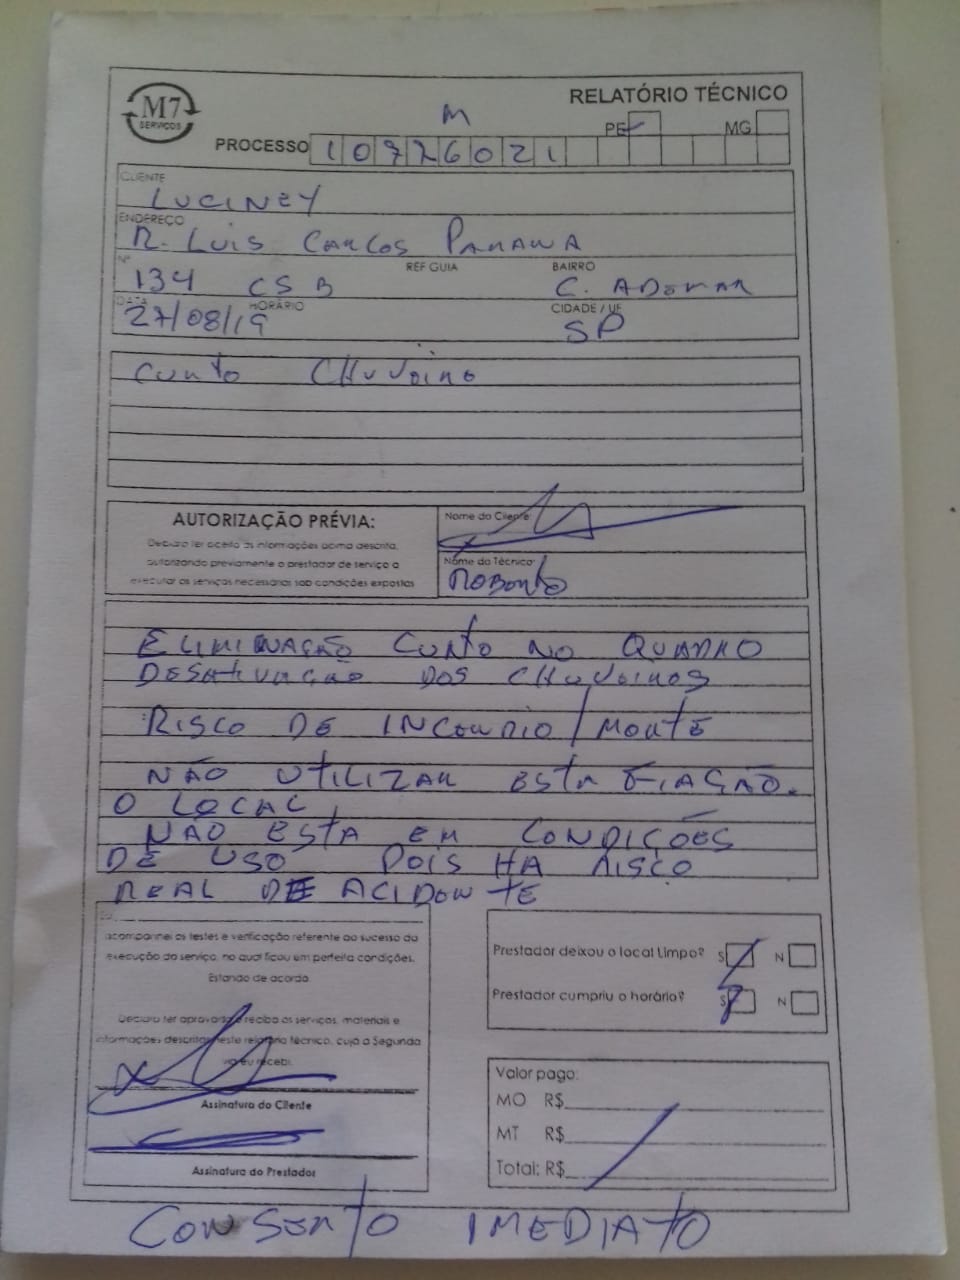 M7
SERVIÇOS
RELATÓRIO TÉCNICO
M
PE MG
PROCESSO 10976021
CLIENTE
LUCINEY
ENDEREÇO
R. LUIS CARLOS PARAWA
Nº REF GUIA BAIRRO
134 CS B C. ADEMAR
DATA HORÁRIO CIDADE / UF
27/08/19 SP
CURTO CHUVEIRO
AUTORIZAÇÃO PRÉVIA:
Declaro ter aceito as informações acima descrita,
autorizando previamente o prestador de serviço a
executar os serviços necessários sob condições expostas
Nome do Cliente:
Nome do Técnico:
ROBERTO
ELIMINAÇÃO CURTO NO QUADRO
DESATIVAÇÃO DOS CHUVEIROS
RISCO DE INCENDIO / MORTE
NÃO UTILIZAR ESTA FIAÇÃO.
O LOCAL
NÃO ESTA EM CONDIÇÕES
DE USO POIS HA RISCO
REAL DE ACIDENTE
Eu,
acompanhei os testes e verificação referente ao sucesso da
execução do serviço, no qual ficou em perfeita condições.
Estando de acordo.
Declaro ter aprovado e recibo os serviços, materiais e
informações descritas neste relatório técnico, cuja a Segunda
via eu recebi.
Assinatura do Cliente
Assinatura do Prestador
Prestador deixou o local Limpo? S N
Prestador cumpriu o horário? S N
Valor pago:
MO R$
MT R$
Total: R$
CONSERTO IMEDIATO